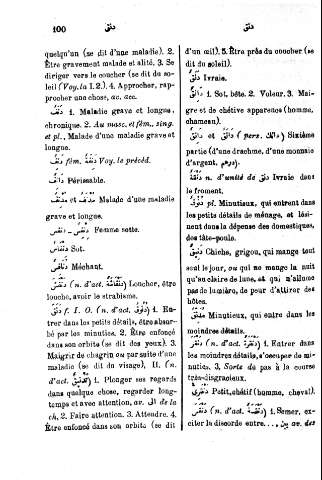 دنق
100
دنق
quelqu'un (se dit d'une maladie). 2.
Être gravement malade et alité. 3. Se
diriger vers le coucher (se dit du so-
leil (Voy. la I. 2.). 4. Approcher, rap-
procher une chose, ac. acc.
دَنَفٌ 1. Maladie grave et longue,
chronique. 2. Au masc. et fém., sing.
et pl., Malade d'une maladie grave et
longue.
دَنِفٌ fém. دَنِفَةٌ Voy. le précéd.
دَانِفٌ Périssable.
مُدْنِفٌ et مُدْنَفٌ Malade d'une maladie
grave et longue.
دنفس — دِنْفِسٌ Femme sotte.
دِنْفَاسٌ Sot.
Méchant.
دنقش (n. d'act. دَنْقَشَةٌ) Loucher, être
louche, avoir le strabisme.
دنق f. I. O. (n. d'act. دُنُوقٌ) 1. En-
trer dans les petits détails, être absor-
bé par les minuties. 2. Être enfoncé
dans son orbite (se dit des yeux). 3.
Maigrir de chagrin ou par suite d'une
maladie (se dit du visage), II. (n.
d'act. تَدْنِيقٌ) 1. Plonger ses regards
dans quelque chose, regarder long-
temps et avec attention, av. الى de la
ch. 2. Faire attention. 3. Attendre. 4.
Être enfoncé dans son orbite (se dit
d'un œil). 5. Être près du coucher (se
dit du soleil).
Ivraie.
دَانِقٌ 1. Sot, bête. 2. Voleur. 3. Mai-
gre et de chétive apparence (homme,
chameau).
دَانِقٌ et دَانَقٌ (pers. دانك) Sixième
partie (d'une drachme, d'une monnaie
d'argent, درهم).
دَنْقَةٌ n. d'unité de دنق Ivraie dans
le froment.
pl. Minutieux, qui entrent dans
les petits détails de ménage, et lési-
nent dans la dépense des domestiques,
des tâte-poule.
Chiche, grigou, qui mange tout
seul le jour, ou qui ne mange la nuit
qu'au clair de lune, et qui n'allume
pas de lumière, de peur d'attirer des
hôtes.
Minutieux, qui entre dans les
moindres détails.
دنقر (n. d'act. دَنْقَرَةٌ) 1. Entrer dans
les moindres détails, s'occuper de mi-
nuties. 3. Sorte de pas à la course
très-disgracieux.
Petit, chétif (homme, cheval).
دنقس (n. d'act. دَنْقَسَةٌ) 1. Semer, ex-
citer la discorde entre..., بين av. des